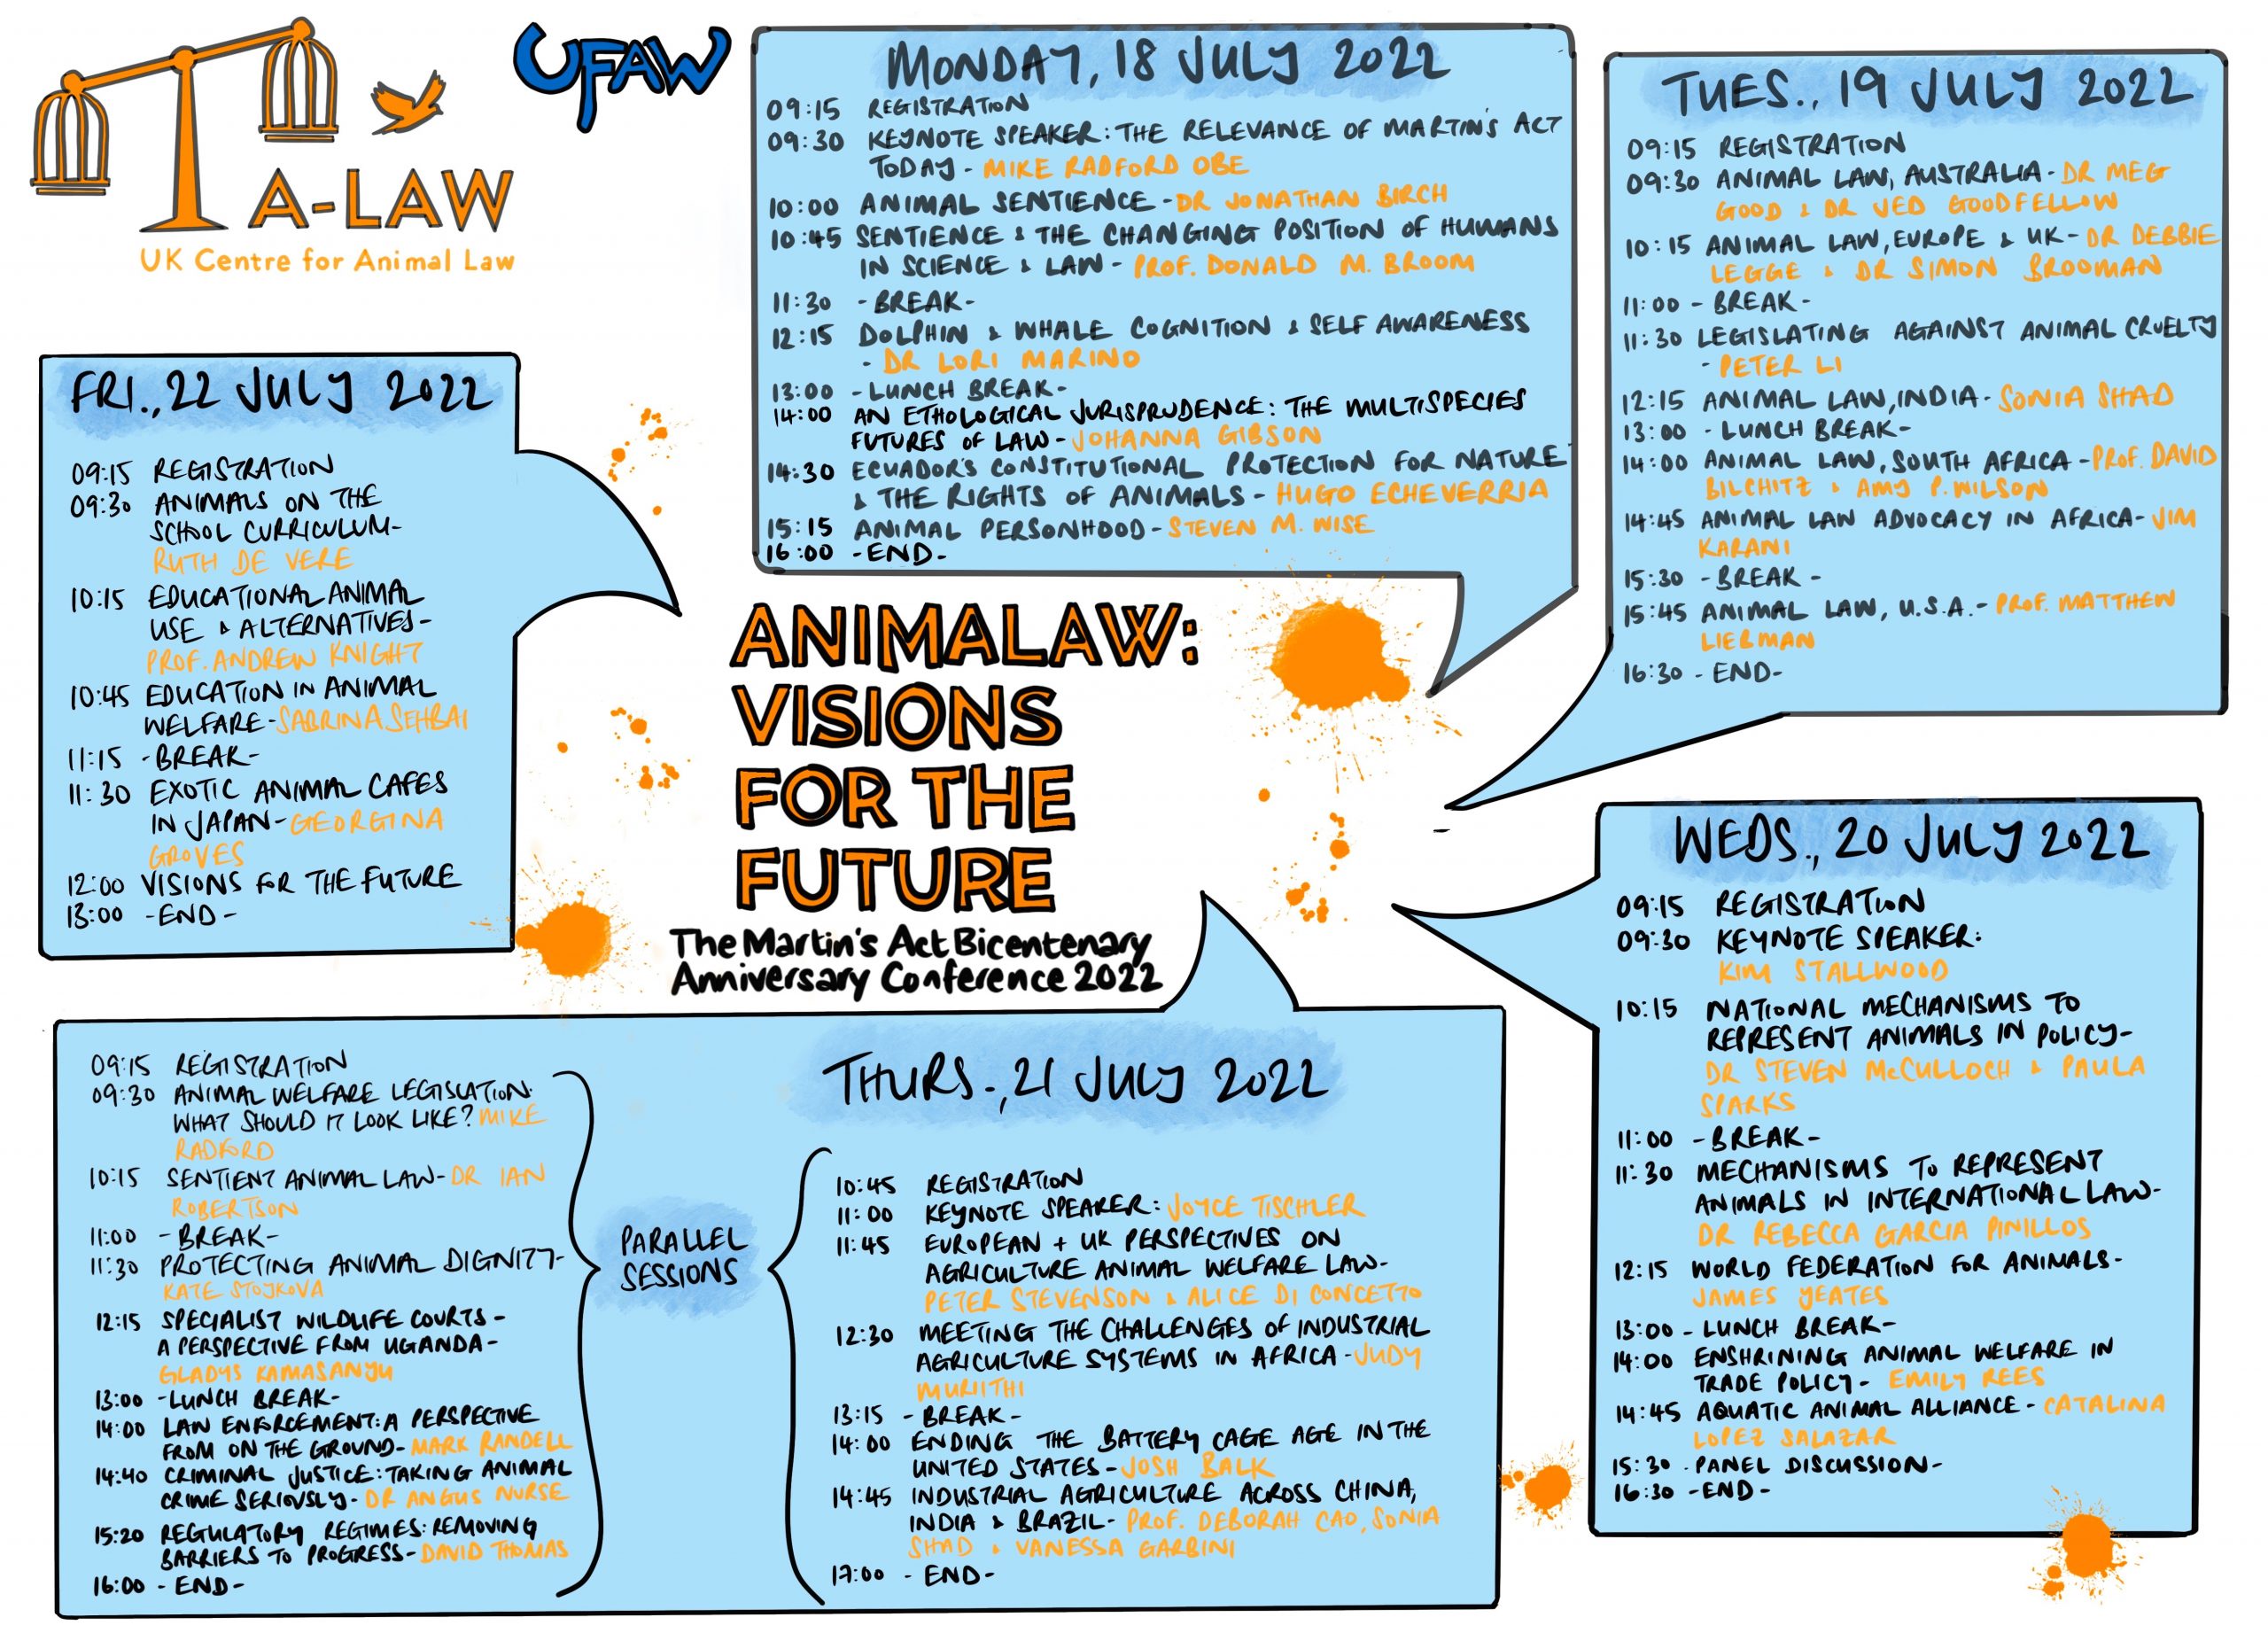 A-LAW
UK Centre for Animal Law
UFAW
MONDAY, 18 JULY 2022
09:15 REGISTRATION
09:30 KEYNOTE SPEAKER: THE RELEVANCE OF MARTIN'S ACT
TODAY - MIKE RADFORD OBE
10:00 ANIMAL SENTIENCE - DR JONATHAN BIRCH
10:45 SENTIENCE & THE CHANGING POSITION OF HUMANS
IN SCIENCE & LAW - PROF. DONALD M. BROOM
11:30 - BREAK -
12:15 DOLPHIN & WHALE COGNITION & SELF AWARENESS
- DR LORI MARINO
13:00 - LUNCH BREAK -
14:00 AN ETHOLOGICAL JURISPRUDENCE: THE MULTISPECIES
FUTURES OF LAW - JOHANNA GIBSON
14:30 ECUADOR'S CONSTITUTIONAL PROTECTION FOR NATURE
& THE RIGHTS OF ANIMALS - HUGO ECHEVERRIA
15:15 ANIMAL PERSONHOOD - STEVEN M. WISE
16:00 - END -
TUES., 19 JULY 2022
09:15 REGISTRATION
09:30 ANIMAL LAW, AUSTRALIA - DR MEG
GOOD & DR JED GOODFELLOW
10:15 ANIMAL LAW, EUROPE & UK - DR DEBBIE
LEGGE & DR SIMON BROOMAN
11:00 - BREAK -
11:30 LEGISLATING AGAINST ANIMAL CRUELTY
- PETER LI
12:15 ANIMAL LAW, INDIA - SONIA SHAD
13:00 - LUNCH BREAK -
14:00 ANIMAL LAW, SOUTH AFRICA - PROF. DAVID
BILCHITZ & AMY P. WILSON
14:45 ANIMAL LAW ADVOCACY IN AFRICA - JIM
KARANI
15:30 - BREAK -
15:45 ANIMAL LAW, U.S.A. - PROF. MATTHEW
LIEBMAN
16:30 - END -
FRI., 22 JULY 2022
09:15 REGISTRATION
09:30 ANIMALS ON THE
SCHOOL CURRICULUM -
RUTH DE VERE
10:15 EDUCATIONAL ANIMAL
USE & ALTERNATIVES -
PROF. ANDREW KNIGHT
10:45 EDUCATION IN ANIMAL
WELFARE - SABRINA SEHBAI
11:15 - BREAK -
11:30 EXOTIC ANIMAL CAFES
IN JAPAN - GEORGINA
GROVES
12:00 VISIONS FOR THE FUTURE
13:00 - END -
ANIMALAW:
VISIONS
FOR THE
FUTURE
The Martin's Act Bicentenary
Anniversary Conference 2022
WEDS., 20 JULY 2022
09:15 REGISTRATION
09:30 KEYNOTE SPEAKER:
KIM STALLWOOD
10:15 NATIONAL MECHANISMS TO
REPRESENT ANIMALS IN POLICY -
DR STEVEN McCULLOCH & PAULA
SPARKS
11:00 - BREAK -
11:30 MECHANISMS TO REPRESENT
ANIMALS IN INTERNATIONAL LAW -
DR REBECCA GARCIA PINILLOS
12:15 WORLD FEDERATION FOR ANIMALS -
JAMES YEATES
13:00 - LUNCH BREAK -
14:00 ENSHRINING ANIMAL WELFARE IN
TRADE POLICY - EMILY REES
14:45 AQUATIC ANIMAL ALLIANCE - CATALINA
LOPEZ SALAZAR
15:30 - PANEL DISCUSSION -
16:30 - END -
THURS., 21 JULY 2022
09:15 REGISTRATION
09:30 ANIMAL WELFARE LEGISLATION:
WHAT SHOULD IT LOOK LIKE? MIKE
RADFORD
10:15 SENTIENT ANIMAL LAW - DR IAN
ROBERTSON
11:00 - BREAK -
11:30 PROTECTING ANIMAL DIGNITY -
KATE STOJKOVA
12:15 SPECIALIST WILDLIFE COURTS -
A PERSPECTIVE FROM UGANDA -
GLADYS KAMASANYU
13:00 - LUNCH BREAK -
14:00 LAW ENFORCEMENT: A PERSPECTIVE
FROM ON THE GROUND - MARK RANDELL
14:40 CRIMINAL JUSTICE: TAKING ANIMAL
CRIME SERIOUSLY - DR ANGUS NURSE
15:20 REGULATORY REGIMES: REMOVING
BARRIERS TO PROGRESS - DAVID THOMAS
16:00 - END -
PARALLEL
SESSIONS
10:45 REGISTRATION
11:00 KEYNOTE SPEAKER: JOYCE TISCHLER
11:45 EUROPEAN + UK PERSPECTIVES ON
AGRICULTURE ANIMAL WELFARE LAW -
PETER STEVENSON & ALICE DI CONCETTO
12:30 MEETING THE CHALLENGES OF INDUSTRIAL
AGRICULTURE SYSTEMS IN AFRICA - JUDY
MURIITHI
13:15 - BREAK -
14:00 ENDING THE BATTERY CAGE AGE IN THE
UNITED STATES - JOSH BALK
14:45 INDUSTRIAL AGRICULTURE ACROSS CHINA,
INDIA & BRAZIL - PROF. DEBORAH CAO, SONIA
SHAD & VANESSA GARBINI
17:00 - END -